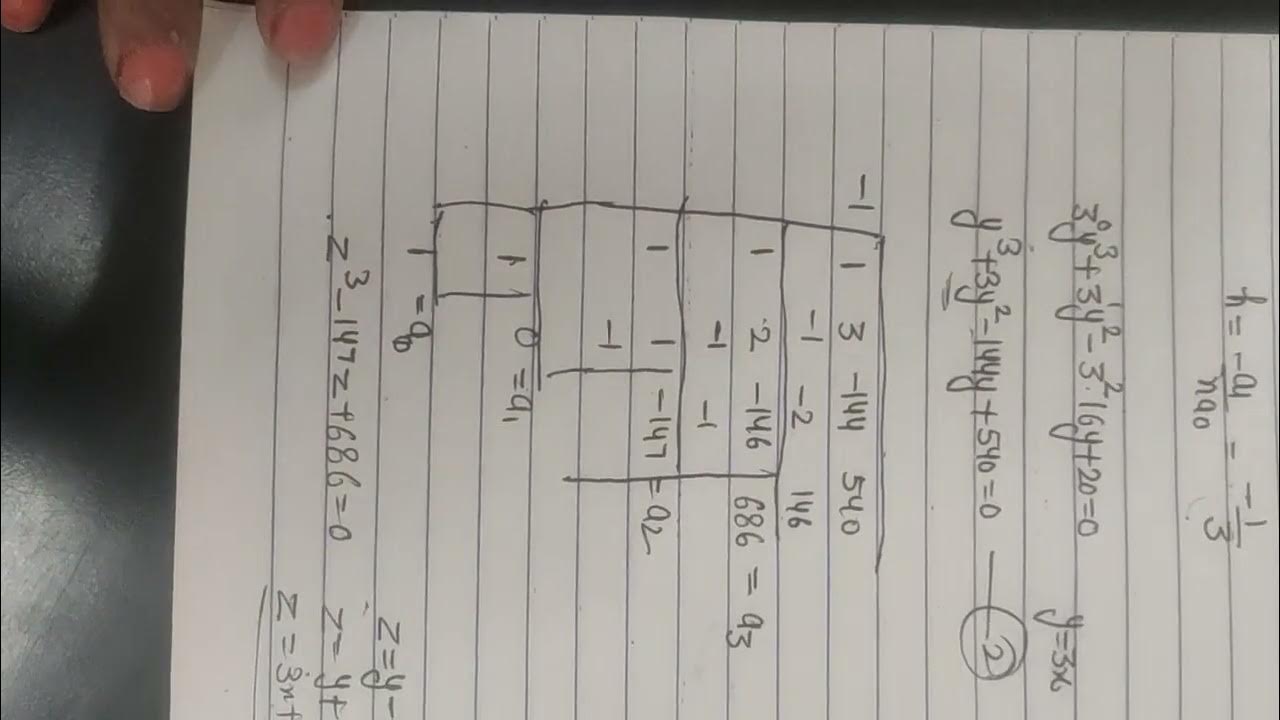 h = -a1/na0 = -1/3
3⁰y³+3y²-3²·16y+20=0 y=3x
y³+3y²-144y+540=0 — 2
-1 1 3 -144 540
-1 -2 146
1 2 -146 686 = a3
-1 -1
1 1 -147 = a2
-1
1 0 = a1
1 = a0
z=y-
z³-147z+686=0 z=y+
z=3x+